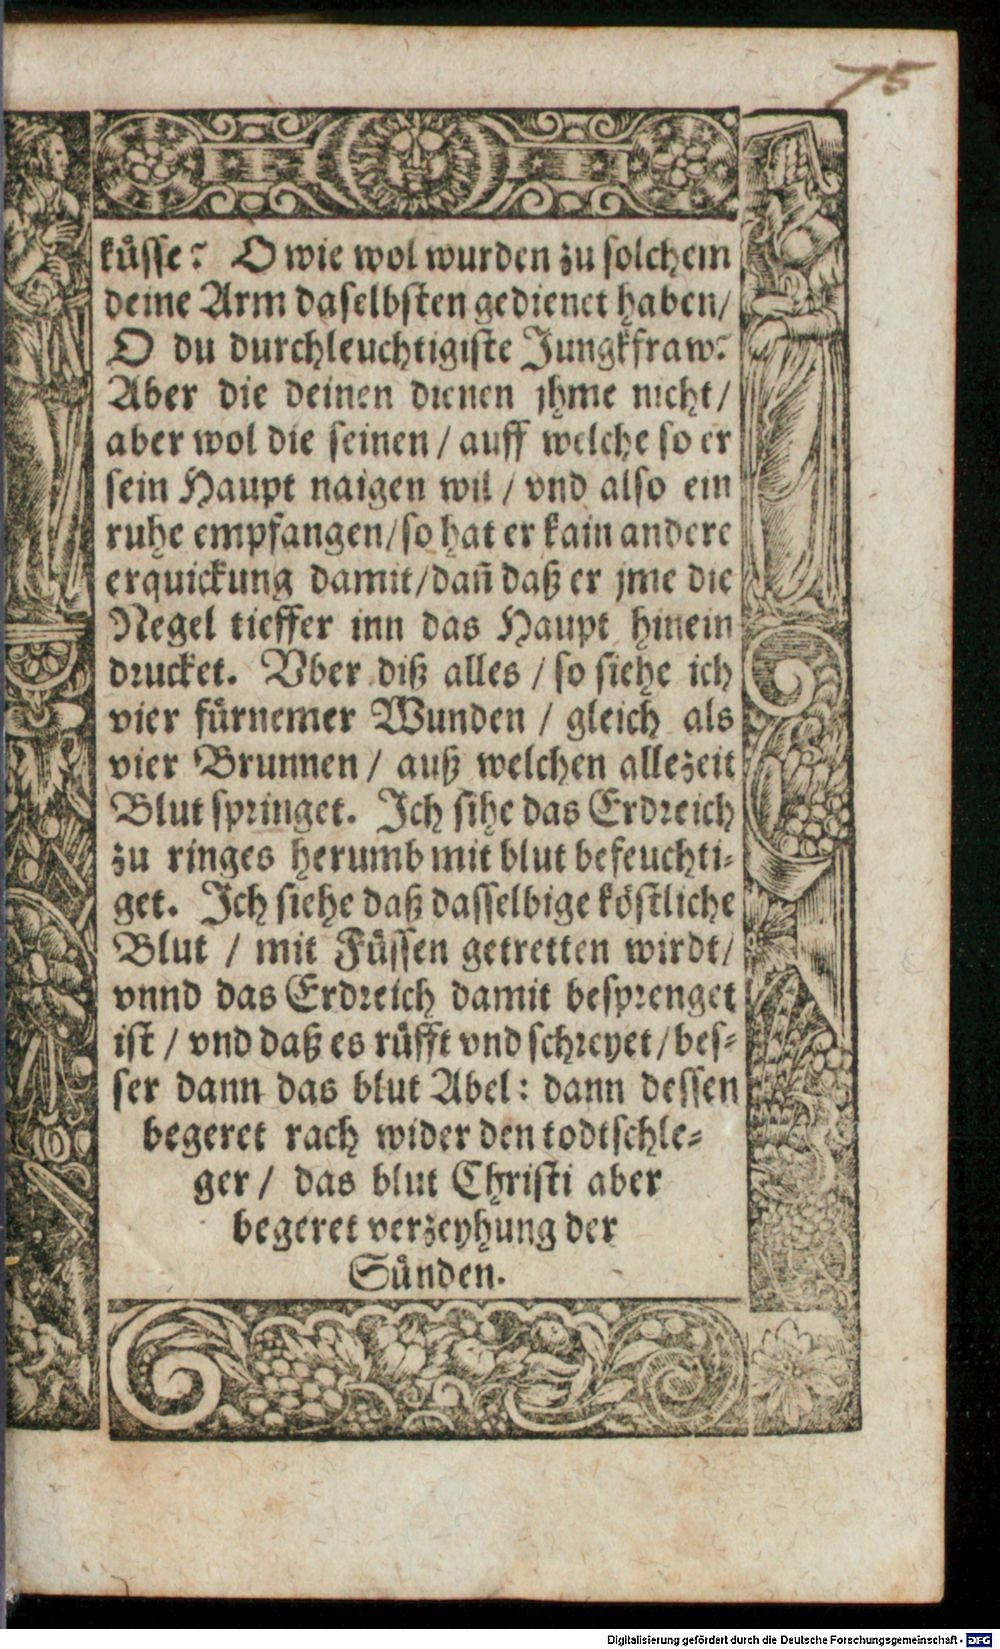 75
küsse? O wie wol wurden zu solchem
deine Arm daselbsten gedienet haben/
O du durchleuchtigiste Jungkfraw?
Aber die deinen dienen jhme nicht/
aber wol die seinen / auff welche so er
sein Haupt naigen wil / vnd also ein
ruhe empfangen/so hat er kain andere
erquickung damit/dañ daß er jme die
Negel tieffer inn das Haupt hinein
drucket. Vber diß alles / so siehe ich
vier fürnemer Wunden / gleich als
vier Brunnen / auß welchen allezeit
Blut springet. Ich sihe das Erdreich
zu ringes herumb mit blut befeuchti-
get. Ich siehe daß dasselbige köstliche
Blut / mit Füssen getretten wirdt/
vnnd das Erdreich damit besprenget
ist / vnd daß es rüfft vnd schreyet/bes-
ser dann das blut Abel: dann dessen
begeret rach wider den todtschle-
ger / das blut Christi aber
begeret verzeyhung der
Sünden.
Digitalisierung gefördert durch die Deutsche Forschungsgemeinschaft - DFG